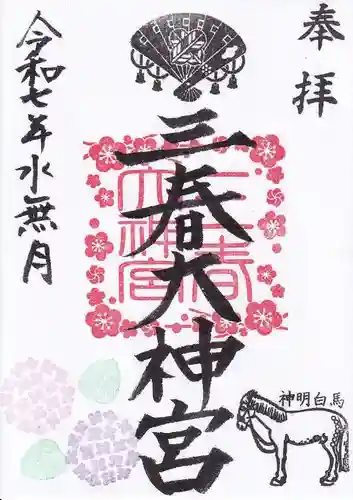 奉拝
三春大神宮
三春大神宮
令和七年水無月
神明白馬